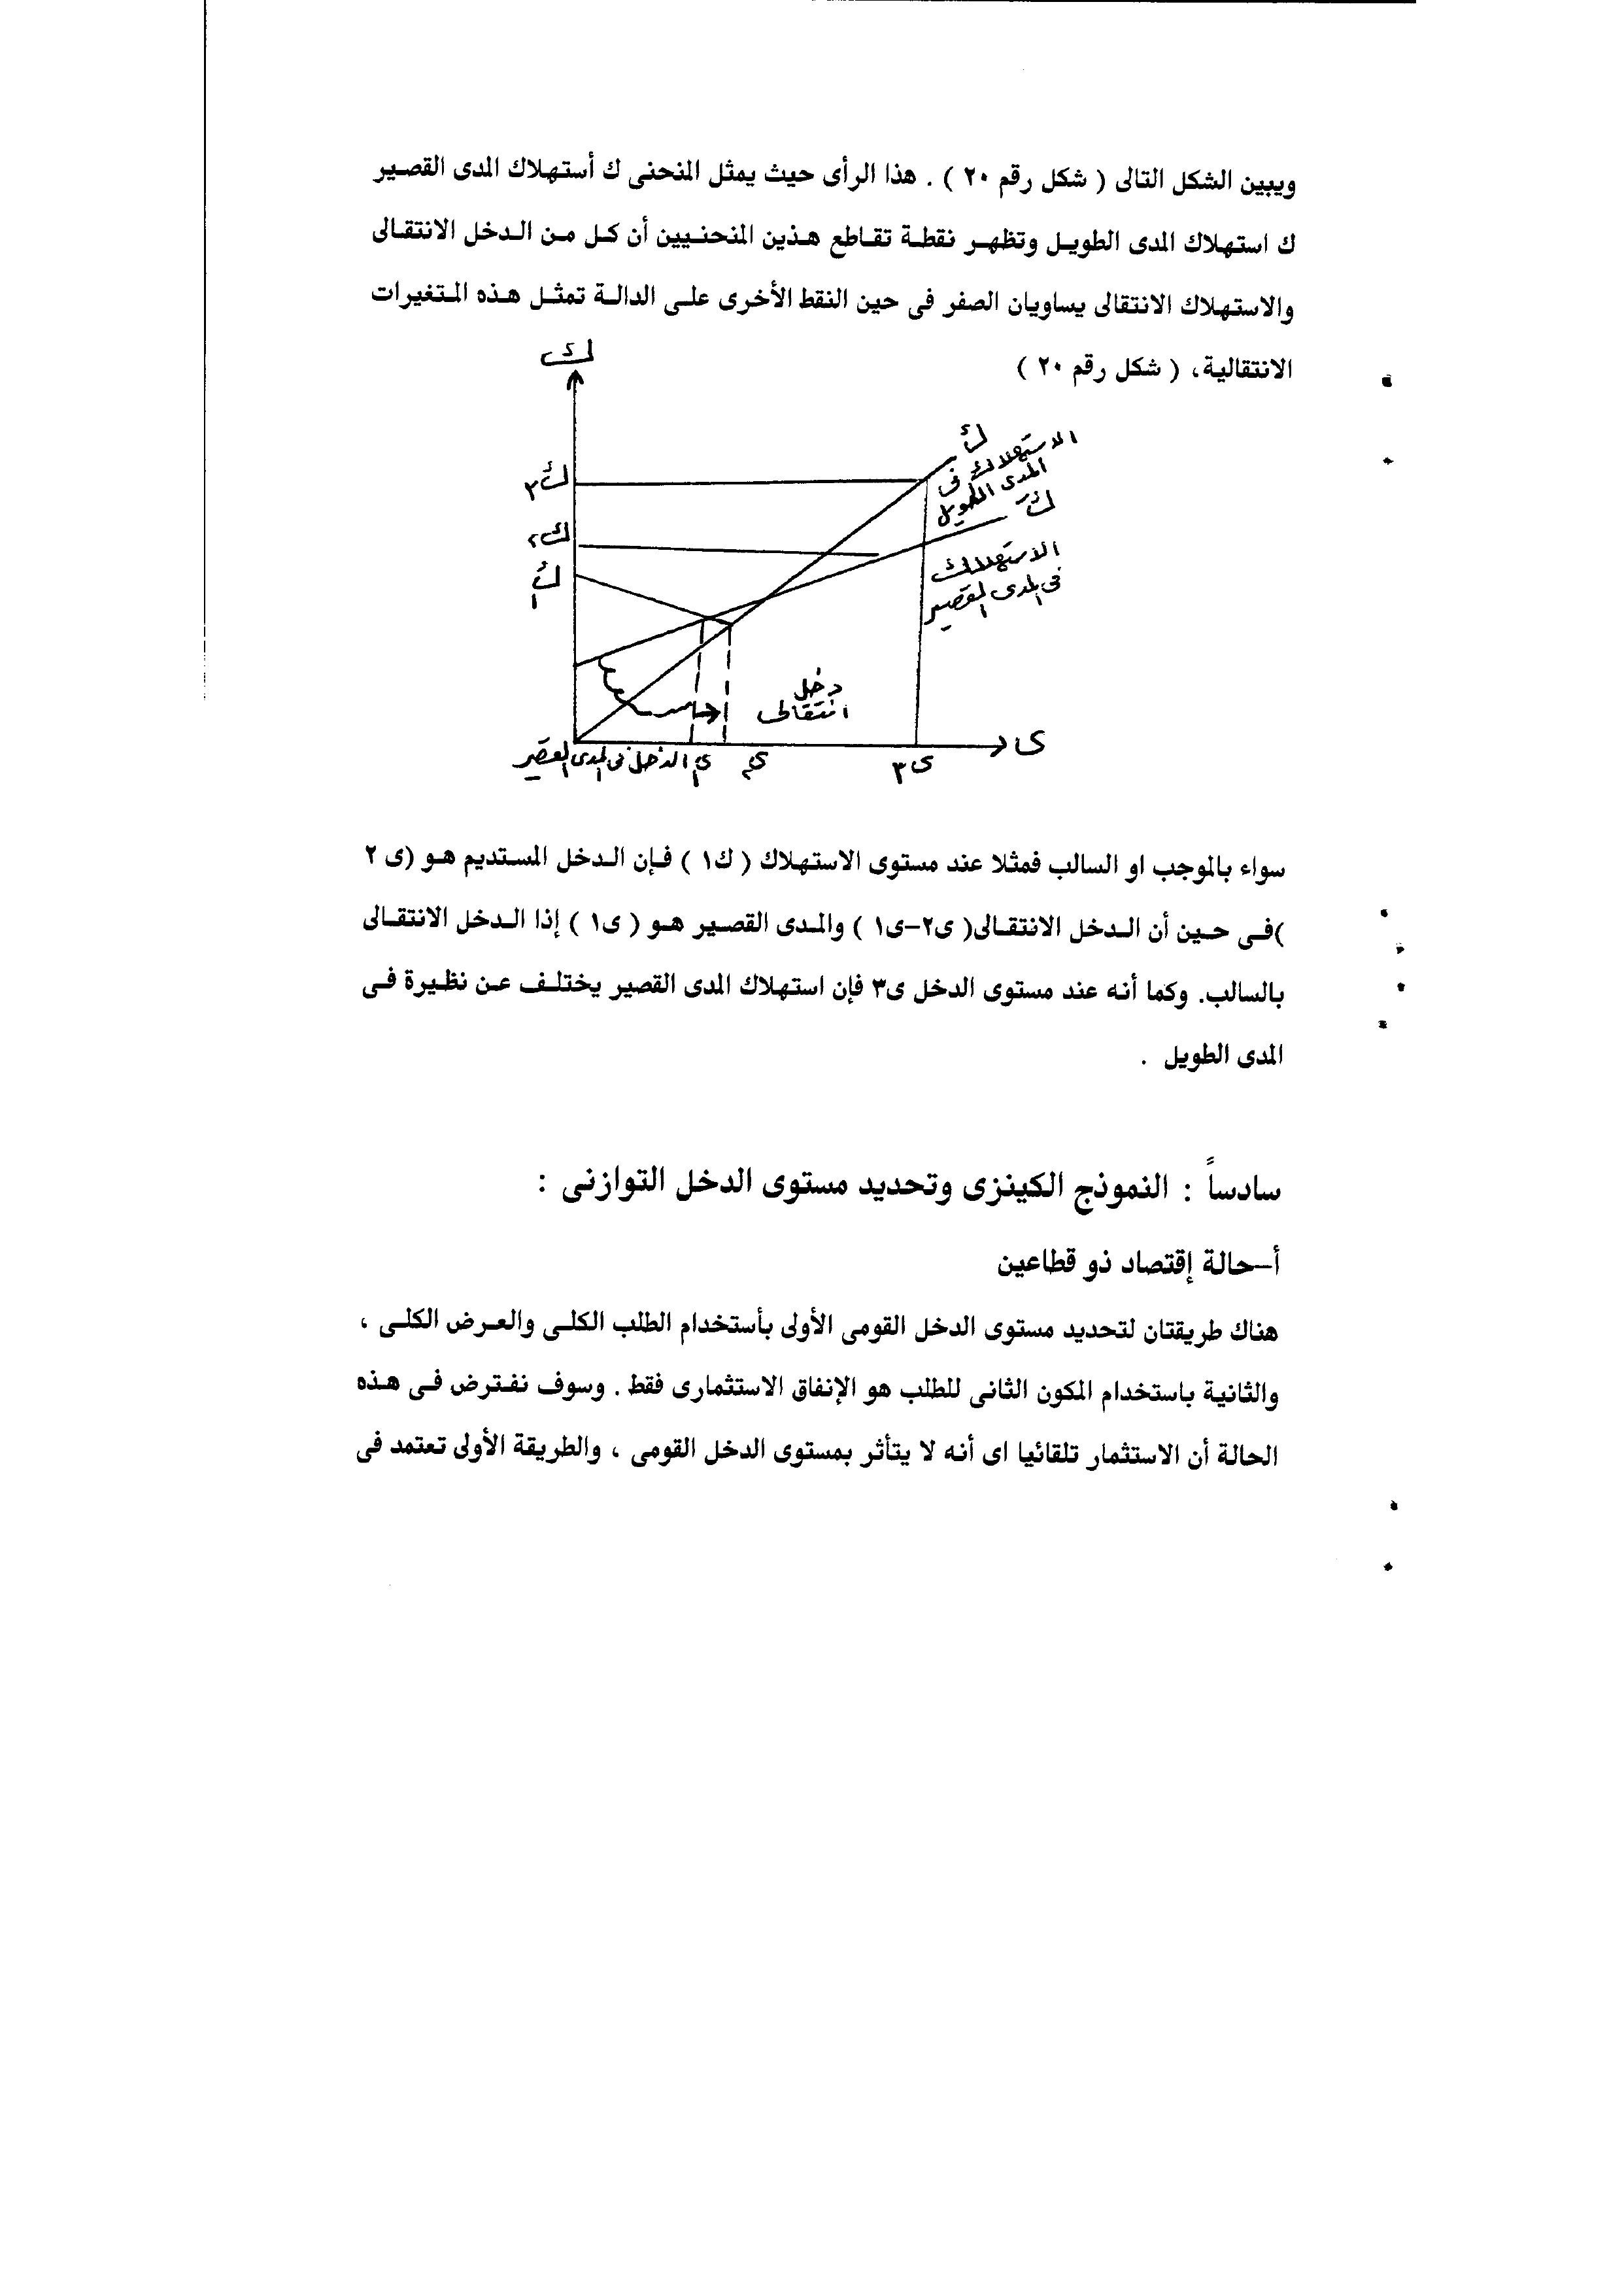 ويبين الشكل التالى ( شكل رقم ٢٠ ) . هذا الرأى حيث يمثل المنحنى ك أستهلاك المدى القصير
ك استهلاك المدى الطويل وتظهر نقطة تقاطع هذين المنحنيين أن كل من الدخل الانتقالى
والاستهلاك الانتقالى يساويان الصفر فى حين النقط الأخرى على الدالة تمثل هذه المتغيرات
الانتقالية، ( شكل رقم ٢٠ )
ك
ك
الاستهلاك فى
المدى الطويل
ك٣
ك
ك٢
الاستهلاك
فى المدى القصير
ك١
دخل
انتقالى
ى
ى٣
ى٢
ى١
الدخل فى المدى القصير
سواء بالموجب او السالب فمثلا عند مستوى الاستهلاك ( ك١ ) فإن الدخل المستديم هو (ى ٢
)فى حين أن الدخل الانتقالى( ى٢-ى١ ) والمدى القصير هو ( ى١ ) إذا الدخل الانتقالى
بالسالب. وكما أنه عند مستوى الدخل ى٣ فإن استهلاك المدى القصير يختلف عن نظيرة فى
المدى الطويل .
سادساً : النموذج الكينزى وتحديد مستوى الدخل التوازنى :
أ-حالة إقتصاد ذو قطاعين
هناك طريقتان لتحديد مستوى الدخل القومى الأولى بأستخدام الطلب الكلى والعرض الكلى ،
والثانية باستخدام المكون الثانى للطلب هو الإنفاق الاستثمارى فقط . وسوف نفترض فى هذه
الحالة أن الاستثمار تلقائيا اى أنه لا يتأثر بمستوى الدخل القومى ، والطريقة الأولى تعتمد فى